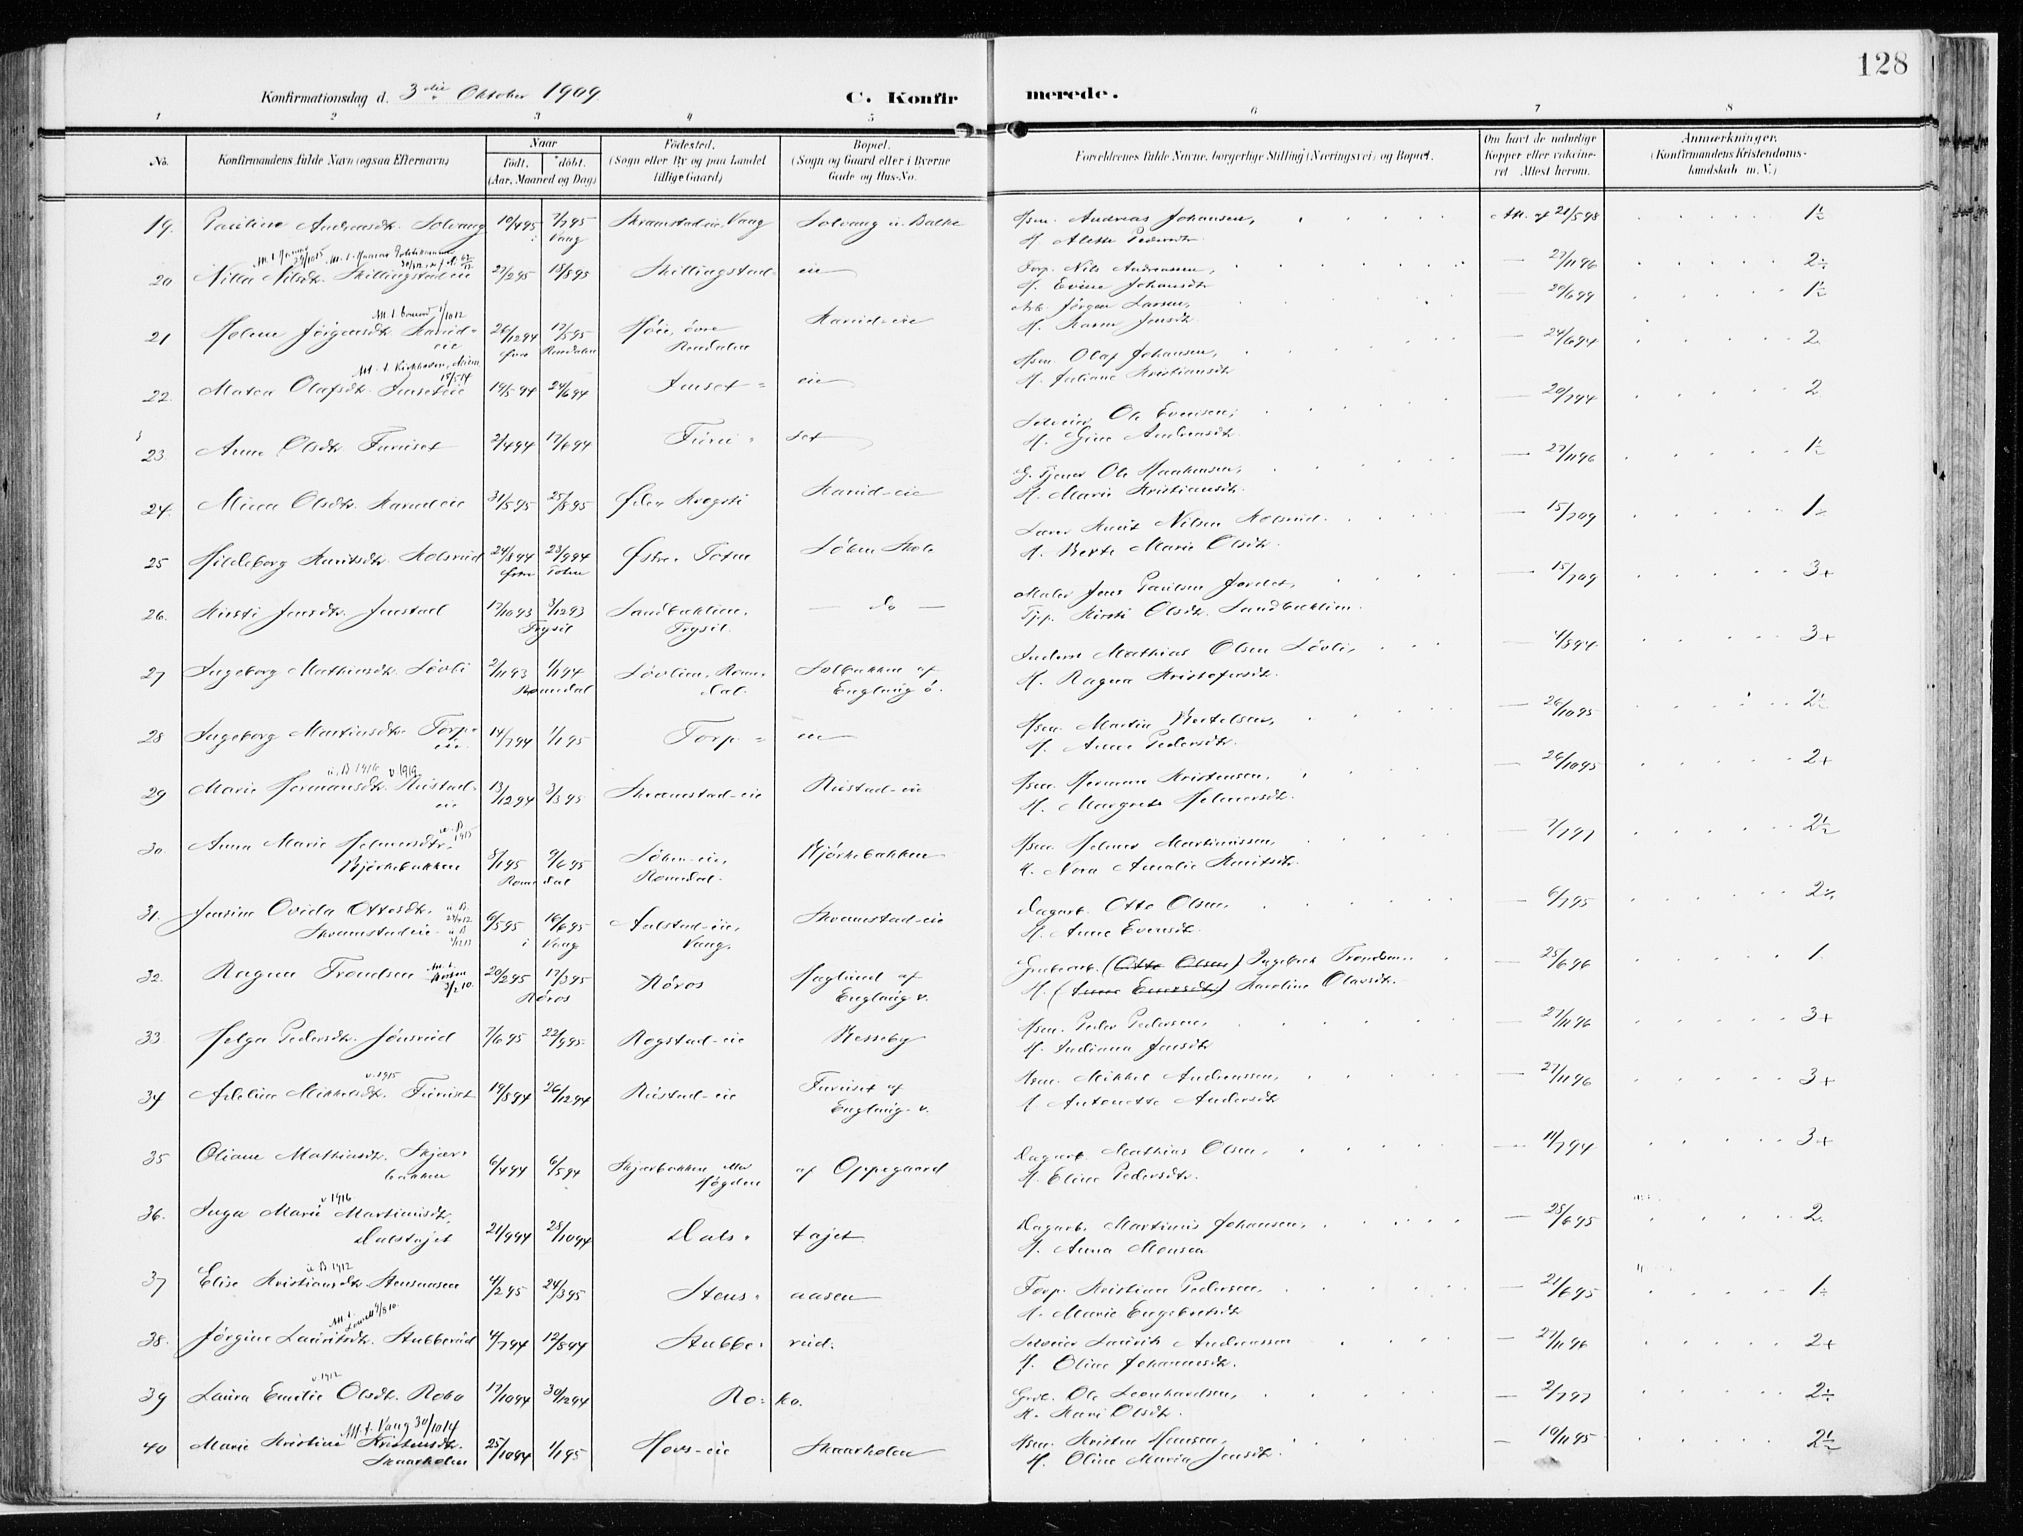 128
Konfirmationsdag d. 3die Oktober 1909.
C. Konfirmerede.
1 2 3 4 5 6 7 8
No.
Konfirmandens fulde Navn (ogsaa Efternavn)
Naar
født. døbt.
(Aar, Maaned og Dag)
Fødested.
(Sogn eller By og paa Landet
tillige Gaard)
Bopæl.
(Sogn og Gaard eller i Byerne
Gade og Hus-No.
Forældrenes fulde Navne, borgerlige Stilling (Næringsvei) og Bopæl.
Om havt de naturlige
Kopper eller vakcine-
ret Attest herom.
Anmærkninger.
(Konfirmandens Kristendoms-
kundskab m. V.)
19. Pauline Andreasdtr. Solvang 10/4 95 7/7 95 Skramstad-eie, Vaag Solvang u. Balke Hsm. Andreas Johansen, Att. af 21/5 98 1÷
i Vang
H. Alette Pedersdtr.
20 Nilla Nilsdtr. Skillingstadeie 27/2 95 18/8 95 Skillingstad- eie Torp. Nils Andreassen, — 27/11 96 2÷
H. Evine Johansdtr
21 Helene Jørgensdtr. Kanid- 26/12 94 12/5 95 Høie, øvre Kanid-eie Arb. Jørgen Larsen, — 20/6 99 1÷
eie Øvre Rendalen Rendalen
H. Karen Jensdtr.
22. Matea Olafsdtr. Imseteie 19/5 94 24/6 94 Imset- eie Hsm. Olaf Johansen, — 24/6 94 2
H. Juliane Kristiansdtr
23. Anne Olsdtr. Furuset 2/4 94 17/6 94 Furu- set Selveier Ole Evensen, — 20/7 94 2
H. Gine Andreasdtr.
24. Mina Olsdtr. Kanideie 31/5 95 25/8 95 Kanid-eie G. Tjener Ole Haakensen, — 27/11 96 1÷
H. Marie Kristiansdtr.
25 Hildeborg Knutsdtr. Kolsrud 24/8 94 23/9 94 Østre Toten Løken Skole Lærer Knut Nilsen Kolsrud. — 15/7 09 1÷
Østre Toten
H. Berte Marie Olsdtr.
26. Kirsti Jensdtr. Jonstad 17/10 93 3/12 93 Sandbakken, — do — Maler Jens Paulsen Jordet, — 15/7 09 3+
Trysil Trysil.
Tjp. Kirsti Olsdtr. Sandbakken.
27 Ingeborg Mathiasdtr. Løvli 2/11 93 1/1 94 Løvlien, Rome- Solbakken af Inderst Mathias Olsen Løvli, — 4/8 94. 3+
Romedal dal. Englaug ø.
H. Ragna Kristofersdtr.
28 Ingeborg Martinsdtr. Torp- 14/7 94 1/1 95 Torp- eie Hsm. Martin Bertelsen, — 26/10 95 2÷
eie.
H. Anne Pedersdtr.
u. B 1916 v. 1919.
29 Marie Hermansdtr. Rustad- 13/12 94 3/3 95 Skramstad-eie Rustad-eie Hsm. Herman Kristensen, — 26/10 95 2+
eie
H. Margrete Helmersdtr.
u. B 1915
30. Anna Marie Helmersdtr. 8/1 95 9/6 95 Løken-eie, Bjørkebakken Hsm. Helmer Martinussen, — 7/7 97 2½
Bjørkebakken Romedal Romedal.
H. Nora Amalie Knutsdtr.
31. Jensine Ovida Ottesdtr. 6/5 95 16/6 95 Aalstad-eie, Skramstad-eie Dagarb. Otte Olsen, — 6/7 95 2½
Skramstadeie i Vang Vang.
H. Anne Evensdtr.
32. Ragna Trondsen 20/2 95 17/3 95 Røros Haglund af Grubearb. (Otte Olsen) Ingebret Trondsen. — 25/6 96 1.
Røros Englaug v.
H. (Anne Evensdtr.) Karoline Olavsdtr.
33 Helga Pedersdtr. Jønsrud 7/6 95 22/9 95 Rogstad-eie Messeby Hsm. Peder Pedersen, — 27/11 96 3+
H. Indiana Jensdtr
v. 1915
34 Adeline Mikkelsdtr. Furuset 19/8 94 26/12 94 Rustad-eie Furuset af Hsm. Mikkel Andreassen, — 27/11 96 3+
Englaug. v.
H. Antonette Andersdtr
35 Oliane Mathiasdtr. Skjær- 6/4 94 6/5 94 Skjærbakken eller af Oppegaard Dagarb. Mathias Olsen, — 11/7 94 3+
bakken Høgden
H. Eline Pedersdtr.
v 1916
36. Inga Marie Martinusdtr. 21/9 94 28/10 94 Dals- tajet Dagarb. Martinus Johansen, — 25/6 95 2.
Dalstajet
H. Anna Monsen
u B 1912
37 Elise Kristiansdtr. Stensaasen 4/2 95 24/3 95 Stens- aasen Torp. Kristian Pedersen, — 21/6 95 1÷
H. Marie Engebretsdtr
38. Jørgine Lauritsdtr. Stubberud 4/7 94 12/8 94 Stubbe- rud. Selveier Laurits Andreassen — 27/11 96 2+
H. Oline Johannesdtr.
v. 1912
39 Laura Emilie Olsdtr. Roko 17/10 94 30/12 94 Ro- ko. Grdb. Ole Leonhardsen, — 2/7 97 2÷
H. Kari Olsdtr.
Att. t. Vang 30/10 14
40 Marie Kristine Kristensdtr. 25/10 94 1/1 95 Hovs-eie Skaarholen Hsm. Kristen Hansen, — 19/11 95 2½
Skaarholen
H. Oline Maria Jensdtr.